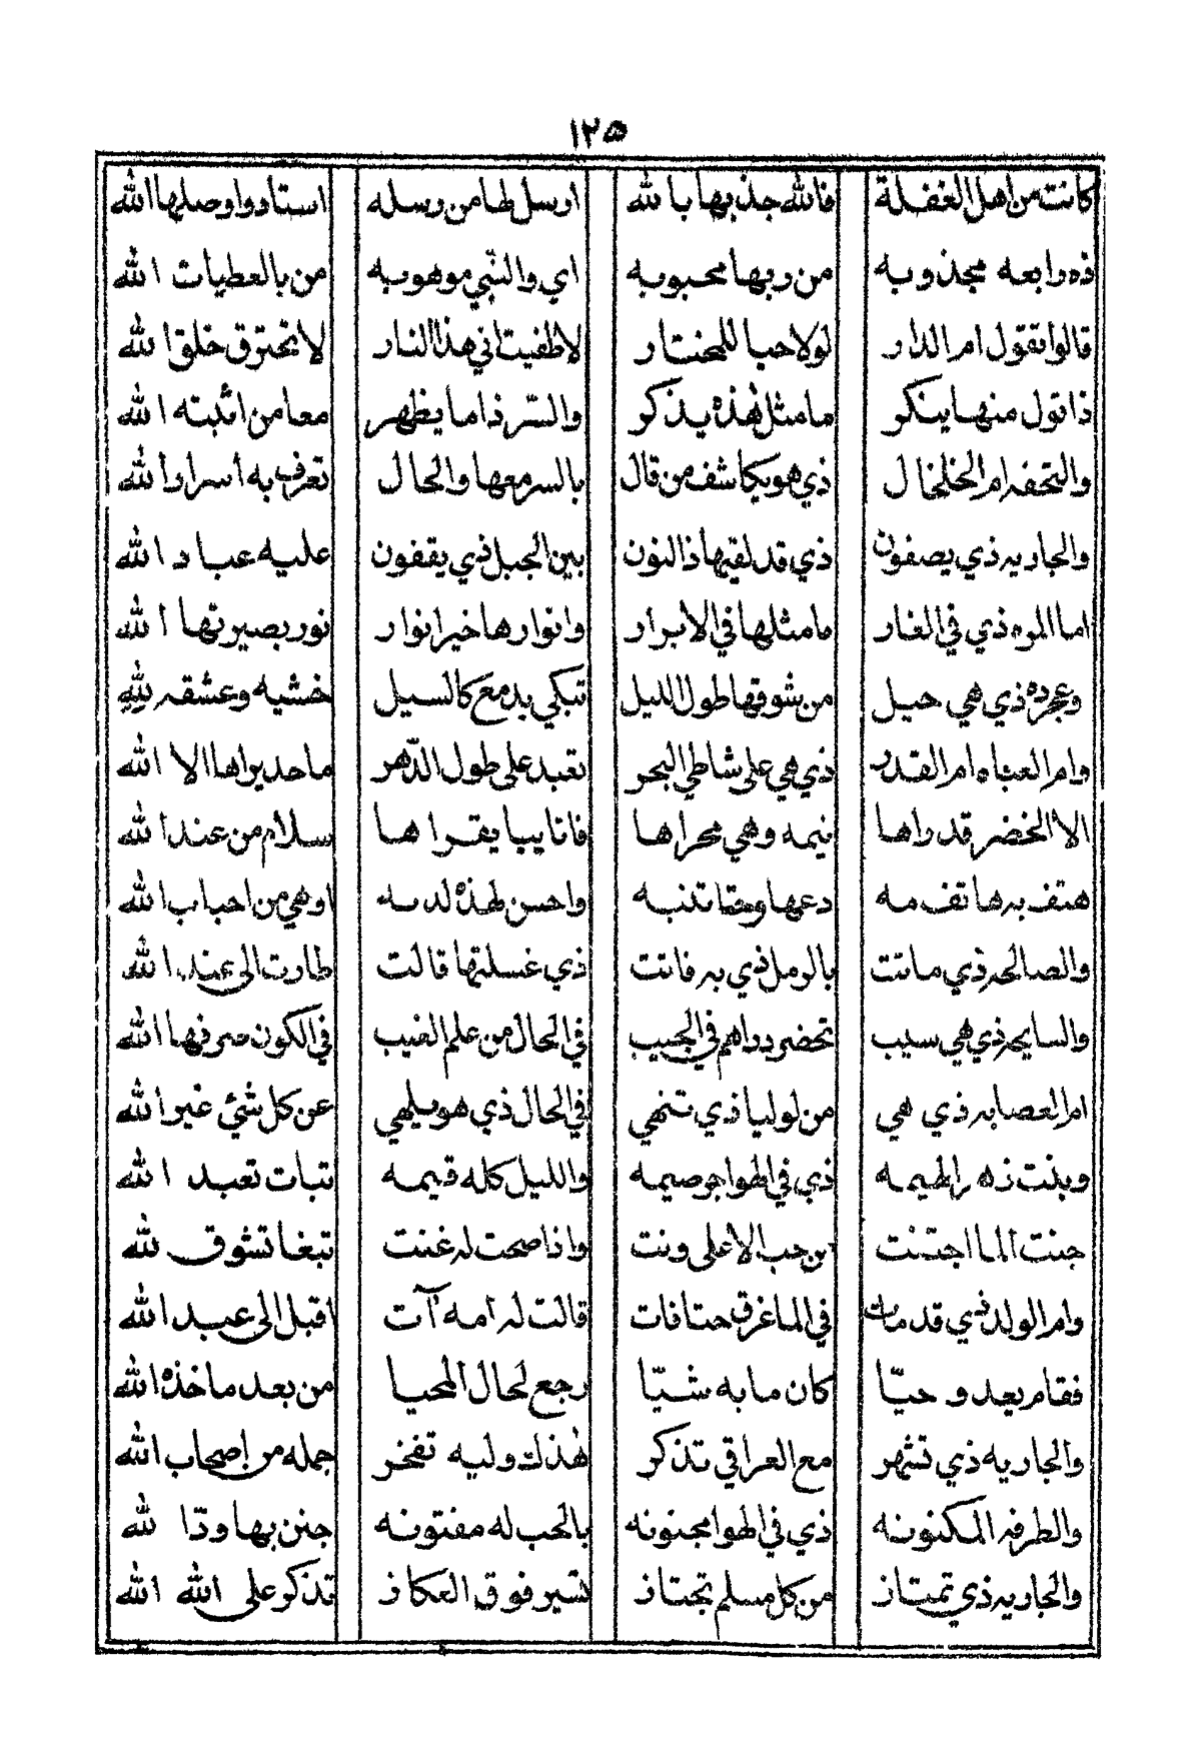 ١٢٥
كانت من اهل الغفلة فالله جذبها بالله ارسل لها من رسله استاد واوصلها الله
ذه رابعه مجذوبه من ربها محبوبه اي والنبي موهوبه من بالعطيات الله
قالوا تقول ام الدار لولا حبا للمختار لاطفيت اني هذا النار لا تحترق خلق الله
ذا تول منها ينكر ما مثل هٰذه يذكر والسّر ذا ما يظهر معا من اثبته الله
والتحفه ام الخلخال ذي هو يكاشف من قال بالسر معها والحال تعرف به أسرار الله
والجاريه ذي يصفون ذي قد لقيها ذا النون بين الجبل ذي يقفون عليه عباد الله
اما المره ذي في الغار ما مثلها في الابرار وانوارها خير انوار نور بصيرتها الله
وعجرده ذي هي حيل من شوقها طول الليل تبكي بدمع كالسيل خشيه وعشقه لله
وام العباه ام القدر ذي هي على شاطي البحر تعبد على طول الدّهر ما حد يراها الا الله
الا الخضر قد راها نيمه وهي محراها فاتا يبا يقراها سلام من عند الله
هتف به هاتف مه دعها وحقا تنبه واحسن لهذه لدبه اوهي من احباب الله
والصالحه ذي ماتت بالرمل ذي به فاتت ذي غسلتها قالت طارت الى عند الله
والسايحه ذي هي سيب تحضر دراهم في الجيب في الحال من علم الغيب في الكون صرفها الله
ام العصابه ذي هي من لوليا ذي تنهي في الحال ذي هو يلهي عن كل شيٍ غير الله
وبنت زهر الهيمه ذي في الهواجر صيمه والليل كله قيمه تبات تعبد الله
جنت الما اجتنت من حب الاعلى ونت واذا صحت له غنت تبغا تشوق لله
وام الولد ذي قد مات في الما غرق حتا فات قالت له امه آت اقبل الى عبد الله
فقام بعد و حيّا كان ما به شيّا رجع لحال المحيا من بعد ما خذه الله
والجاريه ذي تشهر مع العراقي تذكر هٰذك وليه تفخر جمله من اصحاب الله
والطرفه المكنونه ذي في الهوا مجنونه بالحب له مفتونه جنن بها ودّا لله
والجاريه ذي تمتاز من كل مسلم تجتاز تشير فوق العكاز تذكر على الله الله